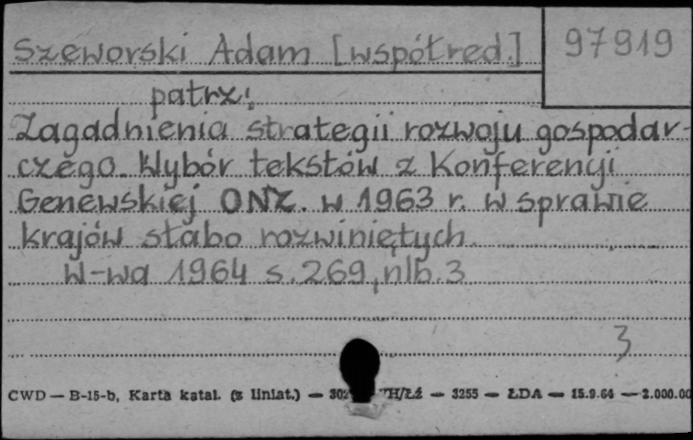 Szeworski Adam [współred.] 97919
patrz:
Zagadnienia strategii rozwoju gospodar-
czego. Wybór tekstów z Konferencji
Genewskiej ONZ. w 1963 r. w sprawie
krajów słabo rozwiniętych.
W-wa 1964 s. 269, nlb. 3
3
CWD — B-15-b, Karta katal. (z liniat.) — /Łź — 3255 — ŁDA — 15.9.64 — 2.000.00